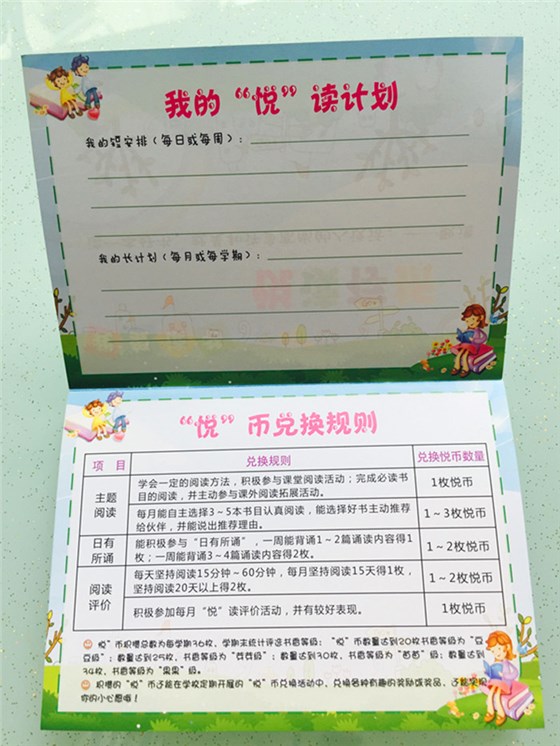 我的“悦”读计划
我的短安排（每日或每周）：
我的长计划（每月或每学期）：
“悦”币兑换规则
项 目 兑换规则 兑换悦币数量
主题阅读
学会一定的阅读方法，积极参与课堂阅读活动；完成必读书
目的阅读，并主动参与课外阅读拓展活动。
1枚悦币
每月能自主选择3～5本书目认真阅读，能选择好书主动推荐
给伙伴，并能说出推荐理由。
1～3枚悦币
日有所诵
能积极参与“日有所诵”，一周能背诵1～2篇诵读内容得1
枚；一周能背诵3～4篇诵读内容得2枚。
1～2枚悦币
阅读评价
每天坚持阅读15分钟～60分钟，每月坚持阅读15天得1枚，
坚持阅读20天以上得2枚。
1～2枚悦币
积极参加每月“悦”读评价活动，并有较好表现。
1枚悦币
“悦”币积攒总数为每学期36枚，学期末统计评选书香等级：“悦”币数量达到20枚书香等级为“豆
豆级”；数量达到25枚，书香等级为“芽芽级”；数量达到30枚，书香等级为“苗苗”级；数量达到
34枚，书香等级为“果果”级。
积攒的“悦”币还能在学校定期开展的“悦”币兑换活动中，兑换各种有趣的奖励或奖品，还能实现
你的小心愿哦！